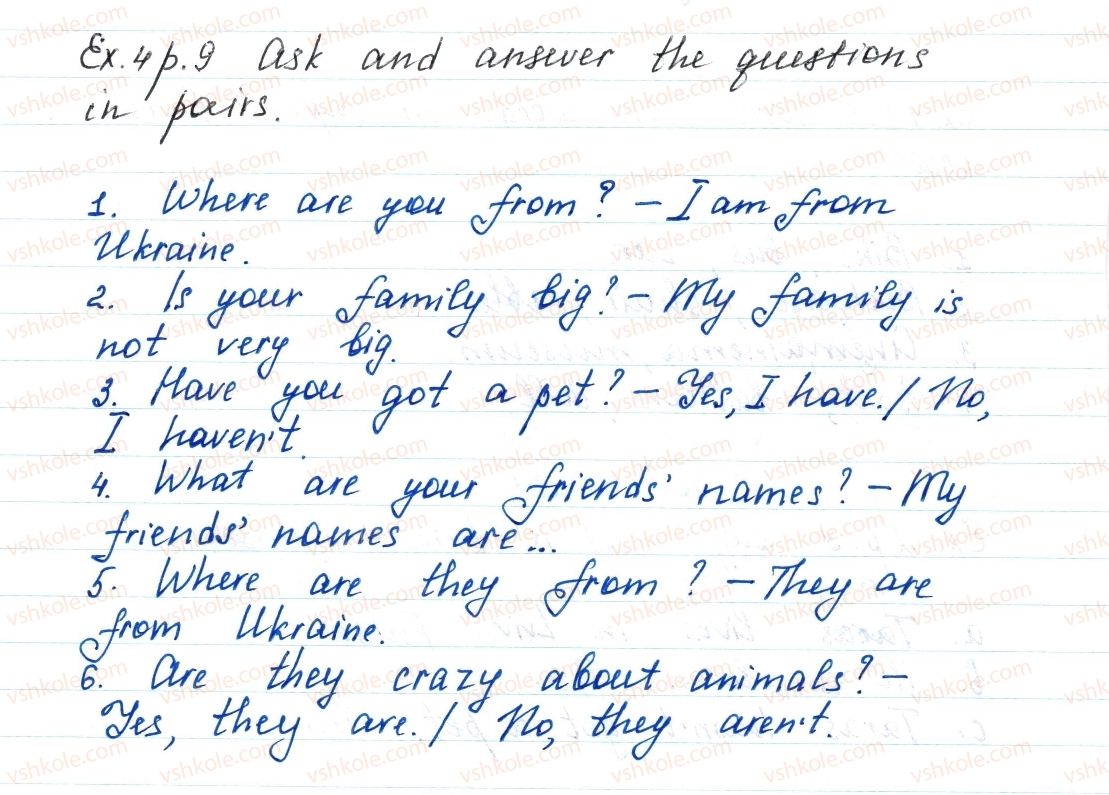 Ex.4 p.9 Ask and answer the questions
in pairs.
1. Where are you from? – I am from
Ukraine.
2. Is your family big? – My family is
not very big.
3. Have you got a pet? – Yes, I have. / No,
I haven't.
4. What are your friends' names? – My
friends' names are...
5. Where are they from? – They are
from Ukraine.
6. Are they crazy about animals? –
Yes, they are. / No, they aren't.